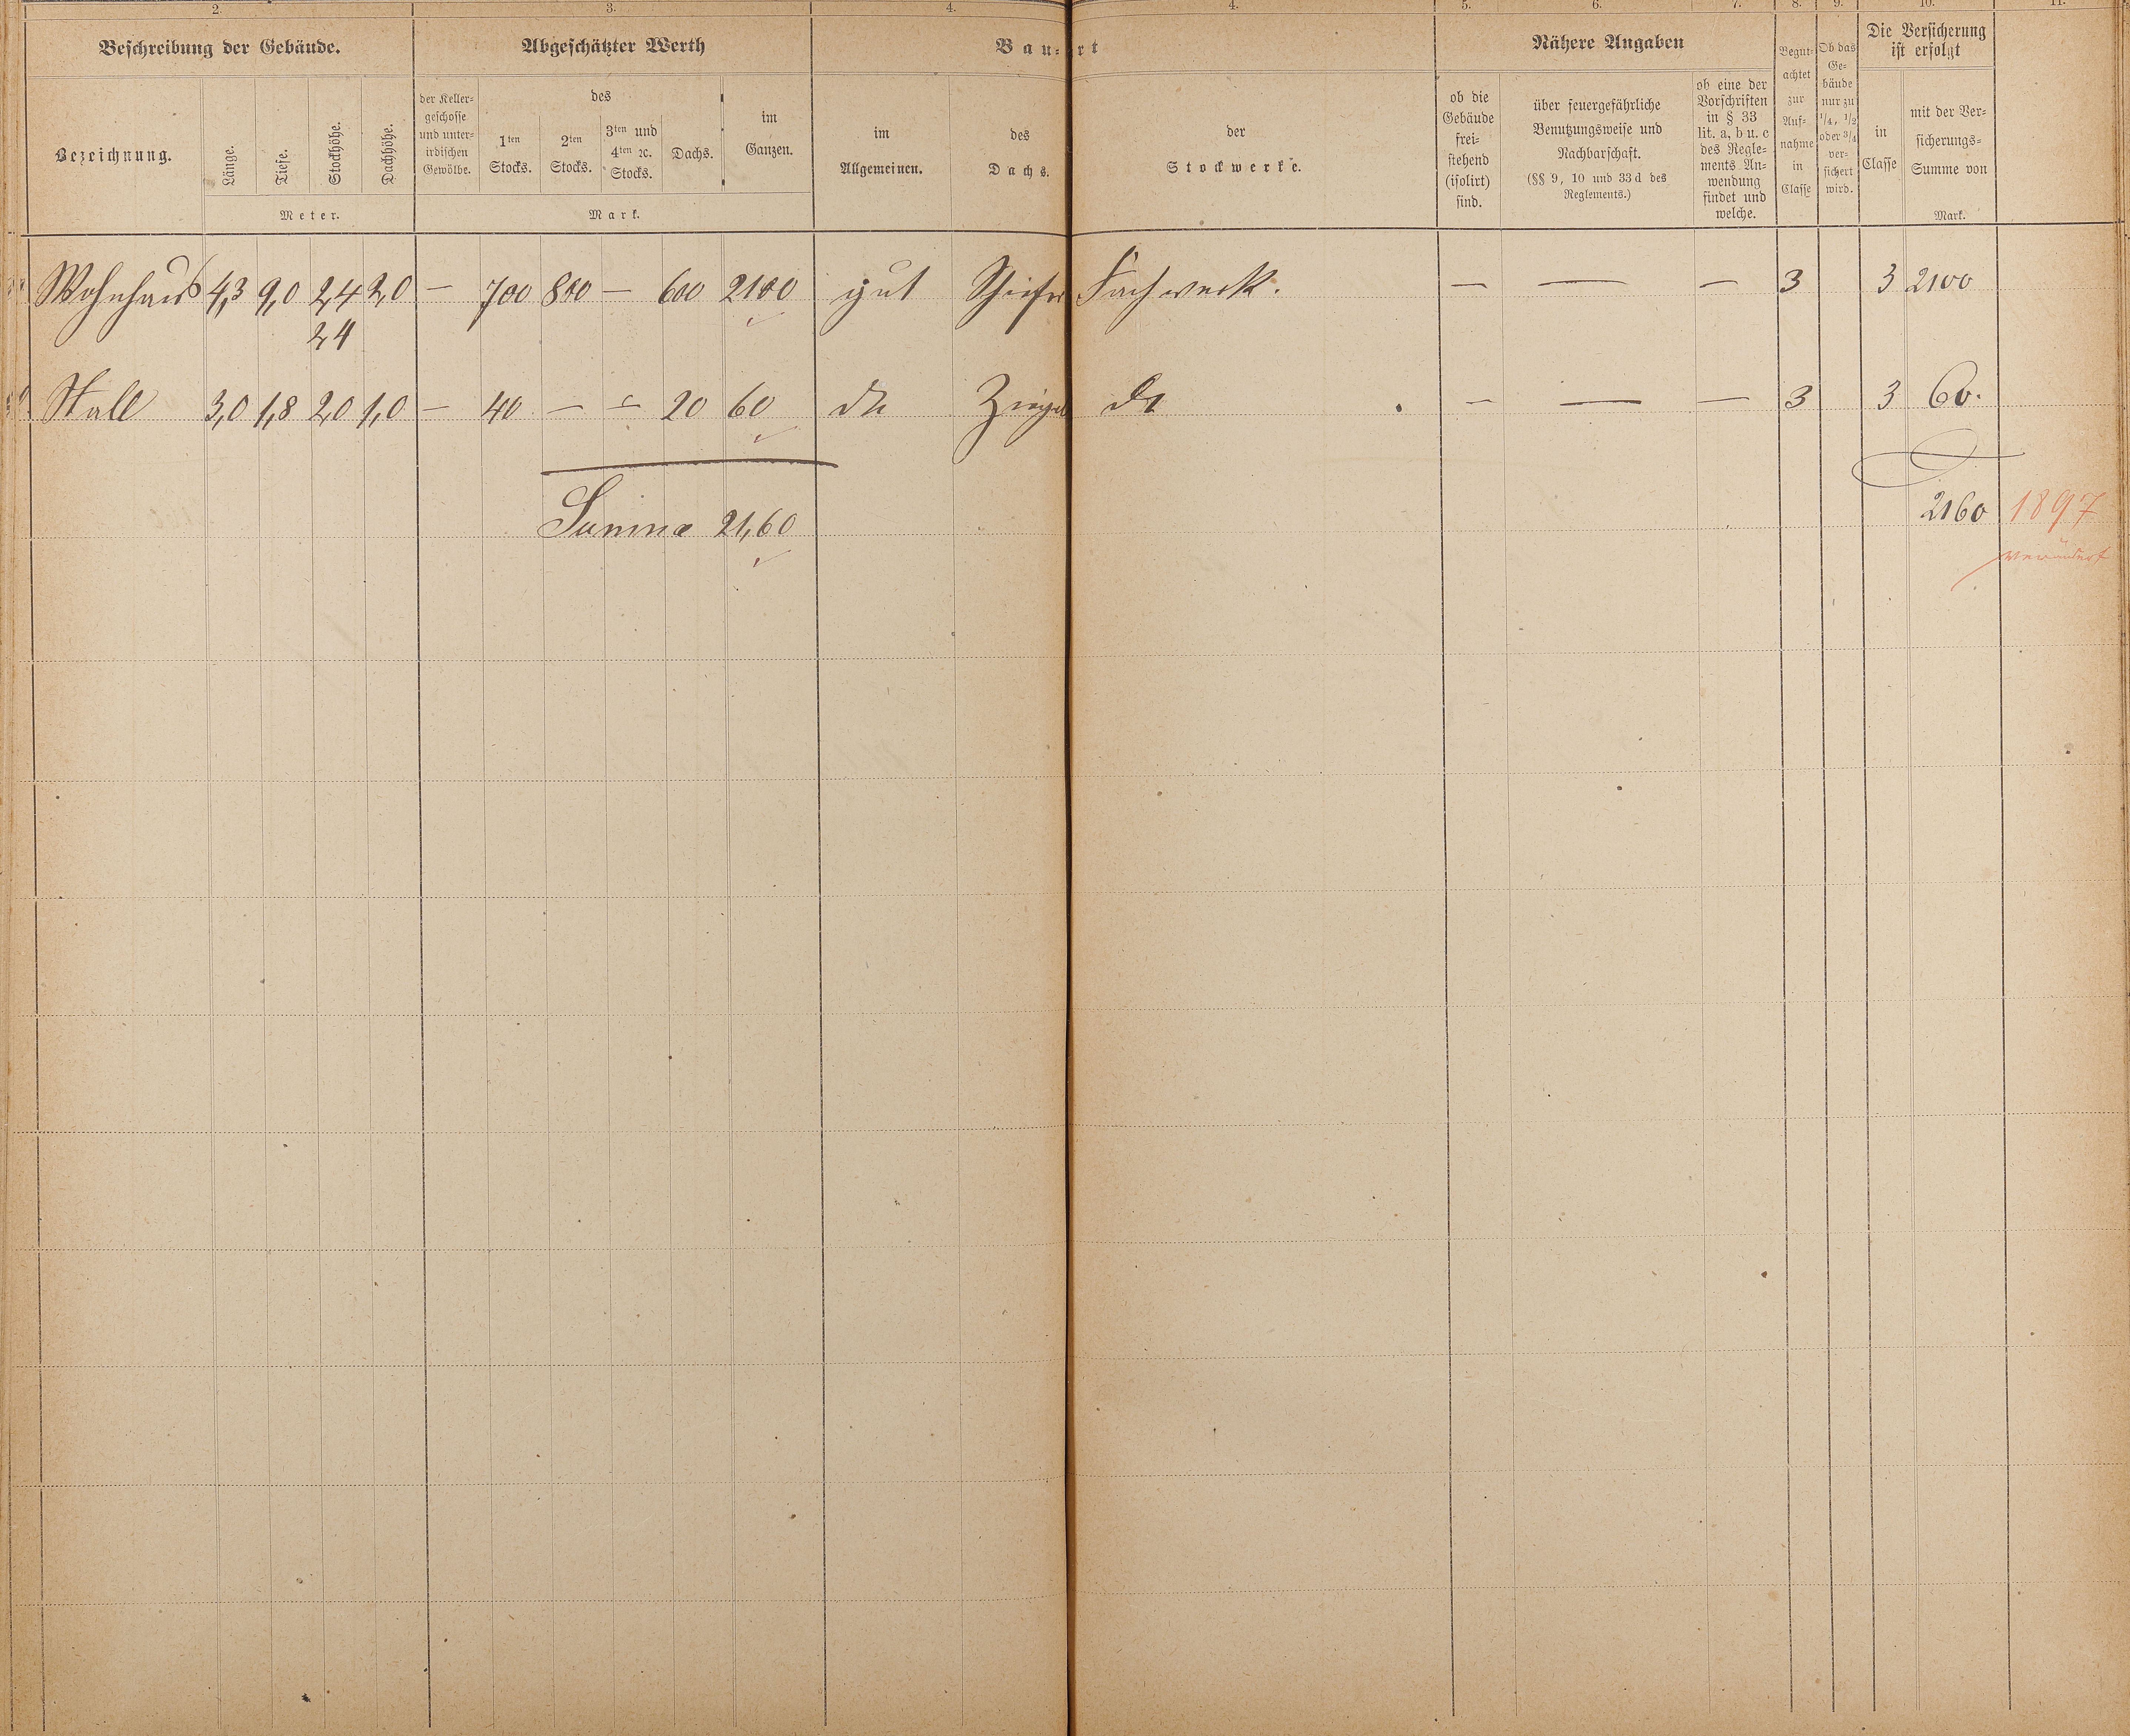 2. 3. 4. 4. 5. 6. 7. 8. 9. 10. 11.
Beschreibung der Gebäude. Abgeschätzter Werth Bau-Art Nähere Angaben
Die Versicherung
ist erfolgt
Bezeichnung.
Länge.
Tiefe.
Stockhöhe.
Dachhöhe.
Meter.
der Keller-
geschosse
und unter-
irdischen
Gewölbe.
des
1ten
Stocks.
2ten
Stocks.
3ten und
4ten ꝛc.
Stocks.
Dachs.
im
Ganzen.
Mark.
im
Allgemeinen.
des
Dachs.
der
Stockwerke.
ob die
Gebäude
frei-
stehend
(isolirt)
sind.
über feuergefährliche
Benutzungsweise und
Nachbarschaft.
(§§ 9, 10 und 33 d des
Reglements.)
ob eine der
Vorschriften
in § 33
lit. a, b u. c
des Regle-
ments An-
wendung
findet und
welche.
Begut-
achtet
zur
Auf-
nahme
in
Classe
Ob das
Ge-
bäude
nur zu
1/4, 1/2
oder 3/4
ver-
sichert
wird.
in
Classe
mit der Ver-
sicherungs-
Summe von
Mark.
Wohnhaus 4,3 9,0 2,4 2,0 — 700 800 — 600 2100 gut Schiefer Fachwerk. — — — 3 3 2100
24
Stall 3,0 1,8 2,0 1,0 — 40 — — 20 60 do Ziegel do — — — 3 3 60.
Summa 21,60 2160 1897
verändert